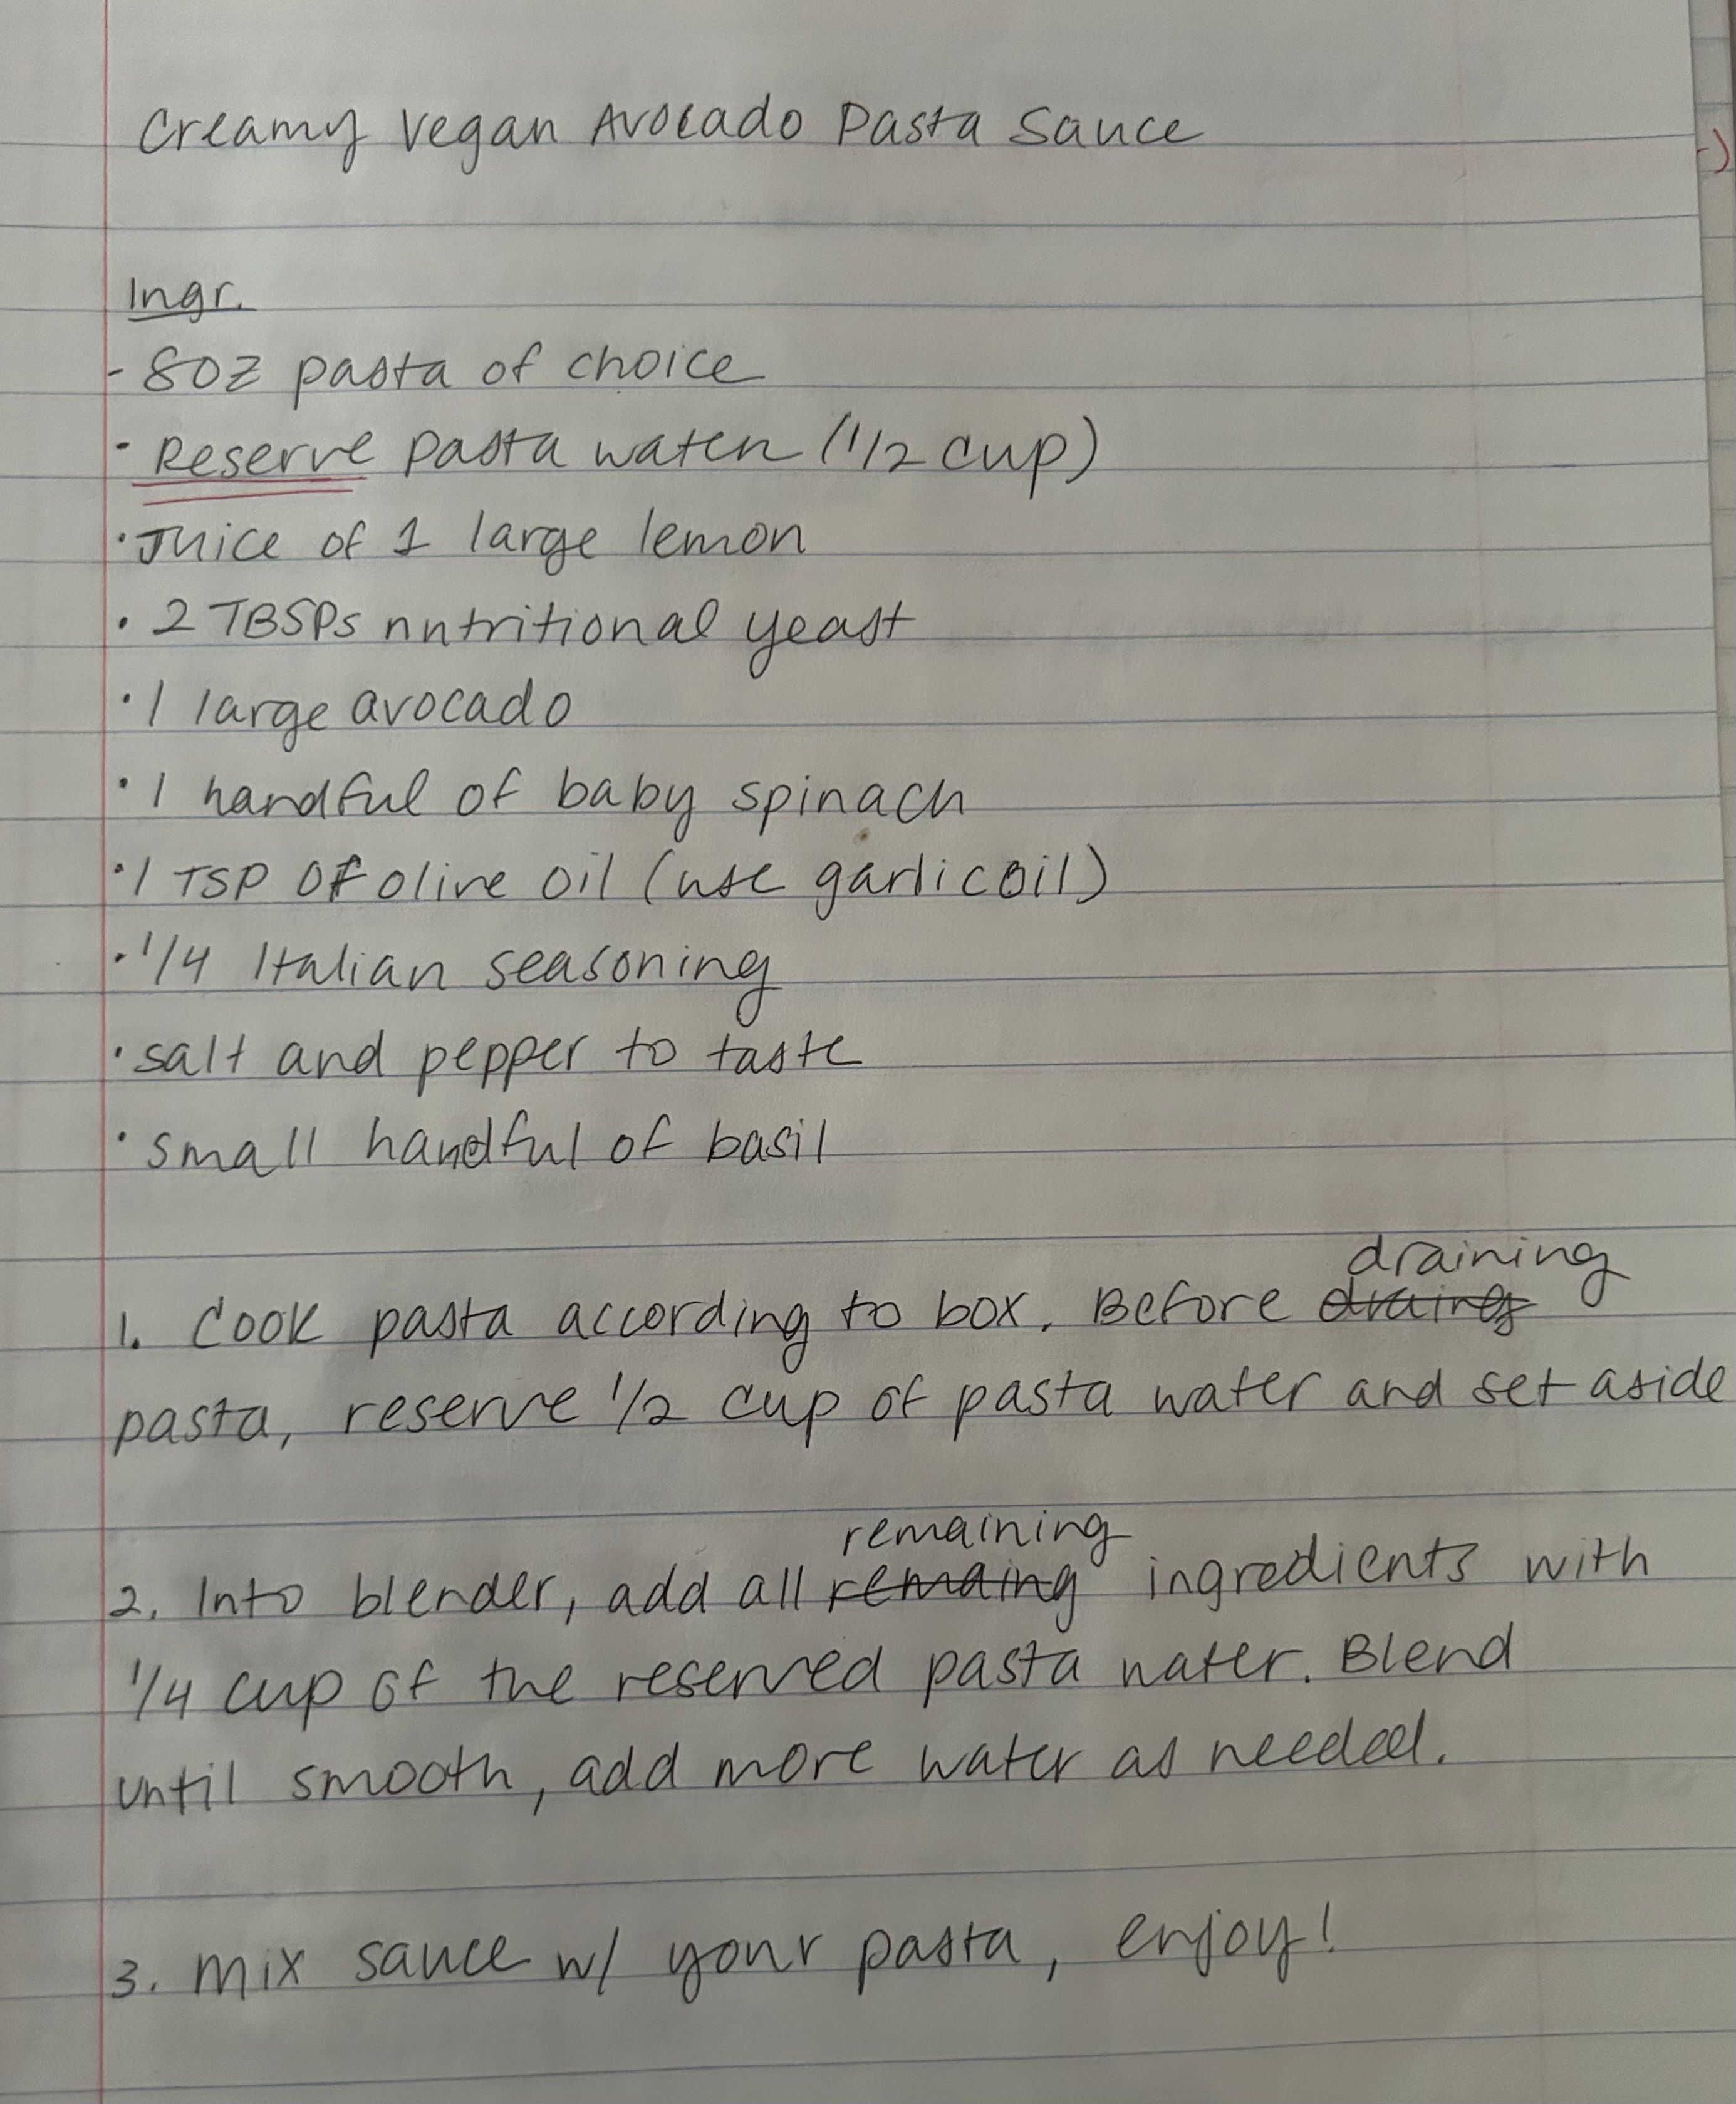 Creamy Vegan Avocado Pasta Sauce
Ingr.
- 8oz pasta of choice
- Reserve pasta water (1/2 cup)
· Juice of 1 large lemon
· 2 TBSPs nutritional yeast
· 1 large avocado
· 1 handful of baby spinach
· 1 TSP of olive oil (use garlic oil)
· 1/4 Italian seasoning
· salt and pepper to taste
· small handful of basil
draining
1. Cook pasta according to box. Before
pasta, reserve 1/2 cup of pasta water and set aside
remaining
2. Into blender, add all remaing ingredients with
1/4 cup of the reserved pasta water. Blend
until smooth, add more water as needed.
3. Mix sauce w/ your pasta, enjoy!